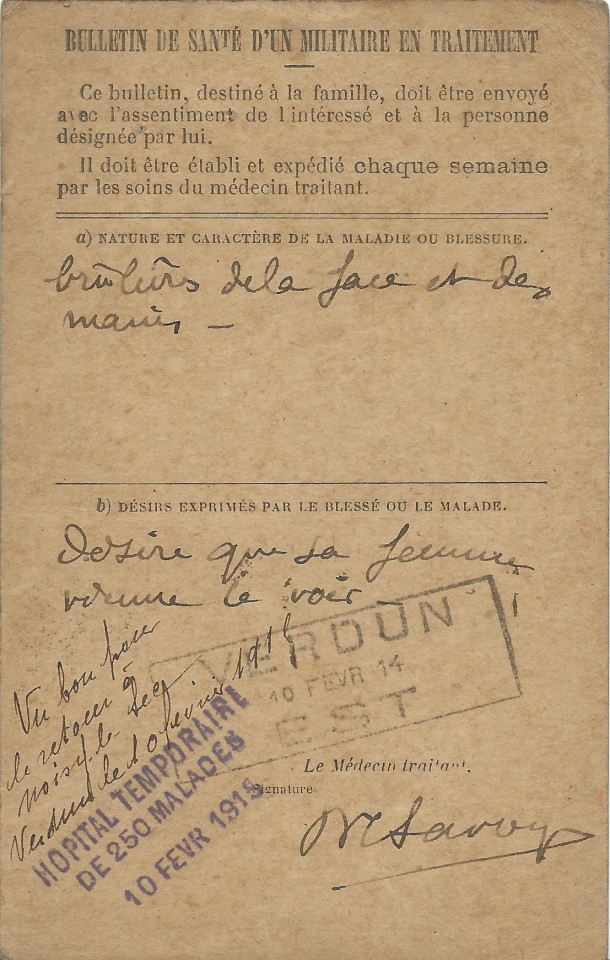 BULLETIN DE SANTÉ D'UN MILITAIRE EN TRAITEMENT
Ce bulletin, destiné à la famille, doit être envoyé
avec l'assentiment de l'intéressé et à la personne
désignée par lui.
Il doit être établi et expédié chaque semaine
par les soins du médecin traitant.
a) NATURE ET CARACTÈRE DE LA MALADIE OU BLESSURE.
brûlures de la face et des
mains —
b) DÉSIRS EXPRIMÉS PAR LE BLESSÉ OU LE MALADE.
Désire que sa femme
vienne le voir
Vu bon pour
le retour à
noisy-le-Sec
Verdun le 10 février 1915
VERDUN
10 FEVR 14
EST
HOPITAL TEMPORAIRE
DE 250 MALADES
10 FEVR 1915
Le Médecin traitant,
Signature